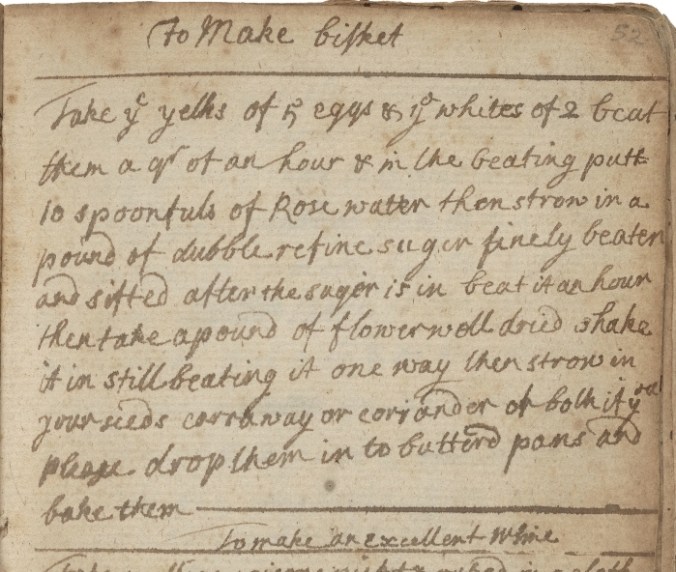 To Make bisket
52
Take ye yelks of 5 eggs & ye whites of 2 beat
them a qr of an hour & in the beating putt
10 spoonfuls of Rose water then strow in a
pound of dubble refine suger finely beaten
and sifted after the suger is in beat it an hour
then take a pound of flower well dried shake
it in still beating it one way then strow in
your seeds carraway or coriander or both if you
please drop them in to butterd pans and
bake them
To make an excellent Whine